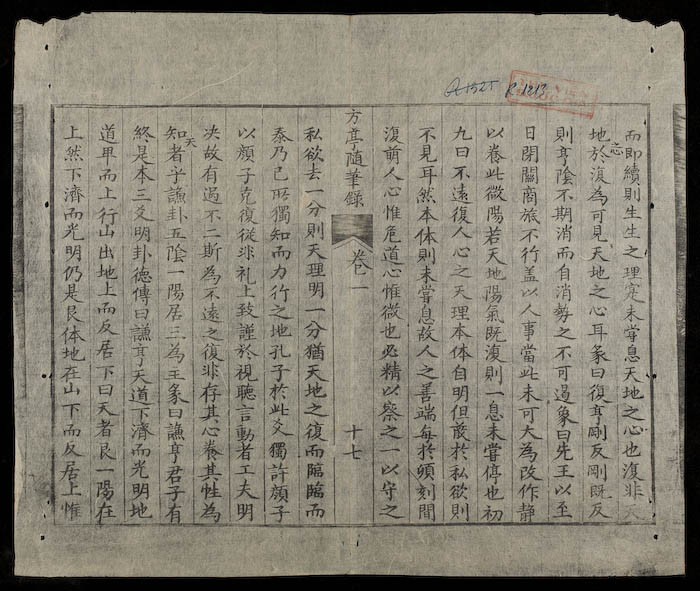 A1525 R.1213
而即續則生生之理寔未嘗息天地之心也復非天
地於復為可見天地之心耳彖曰復亨剛反剛既反
則亨陰不期消而自消勢之不可遏象曰先王以至
日閉關商旅不行盖以人事當此未可大為改作静
以養此微陽若天地陽氣既復則一息未嘗停也初
九曰不遠復人心之天理本体自明但蔽於私欲則
不見耳然本体則未嘗息故人之善端每於頃刻間
復萠人心惟危道心惟微也必精以察之一以守之
方亭隨筆録 卷一 十七
私欲去一分則天理明一分猶天地之復而臨臨而
泰乃已所獨知而力行之地孔子於此爻獨許顔子
以顔子克復從非礼上致謹於視聽言動者工夫明
决故有過不二斯為不遠之復非存其心養其性為
知天者乎謙卦五陰一陽居三為主彖曰謙亨君子有
終是本三爻明卦德傳曰謙亨天道下濟而光明地
道卑而上行山出地上而反居下曰天者艮一陽在
上然下濟而光明仍是艮体地在山下而反居上惟